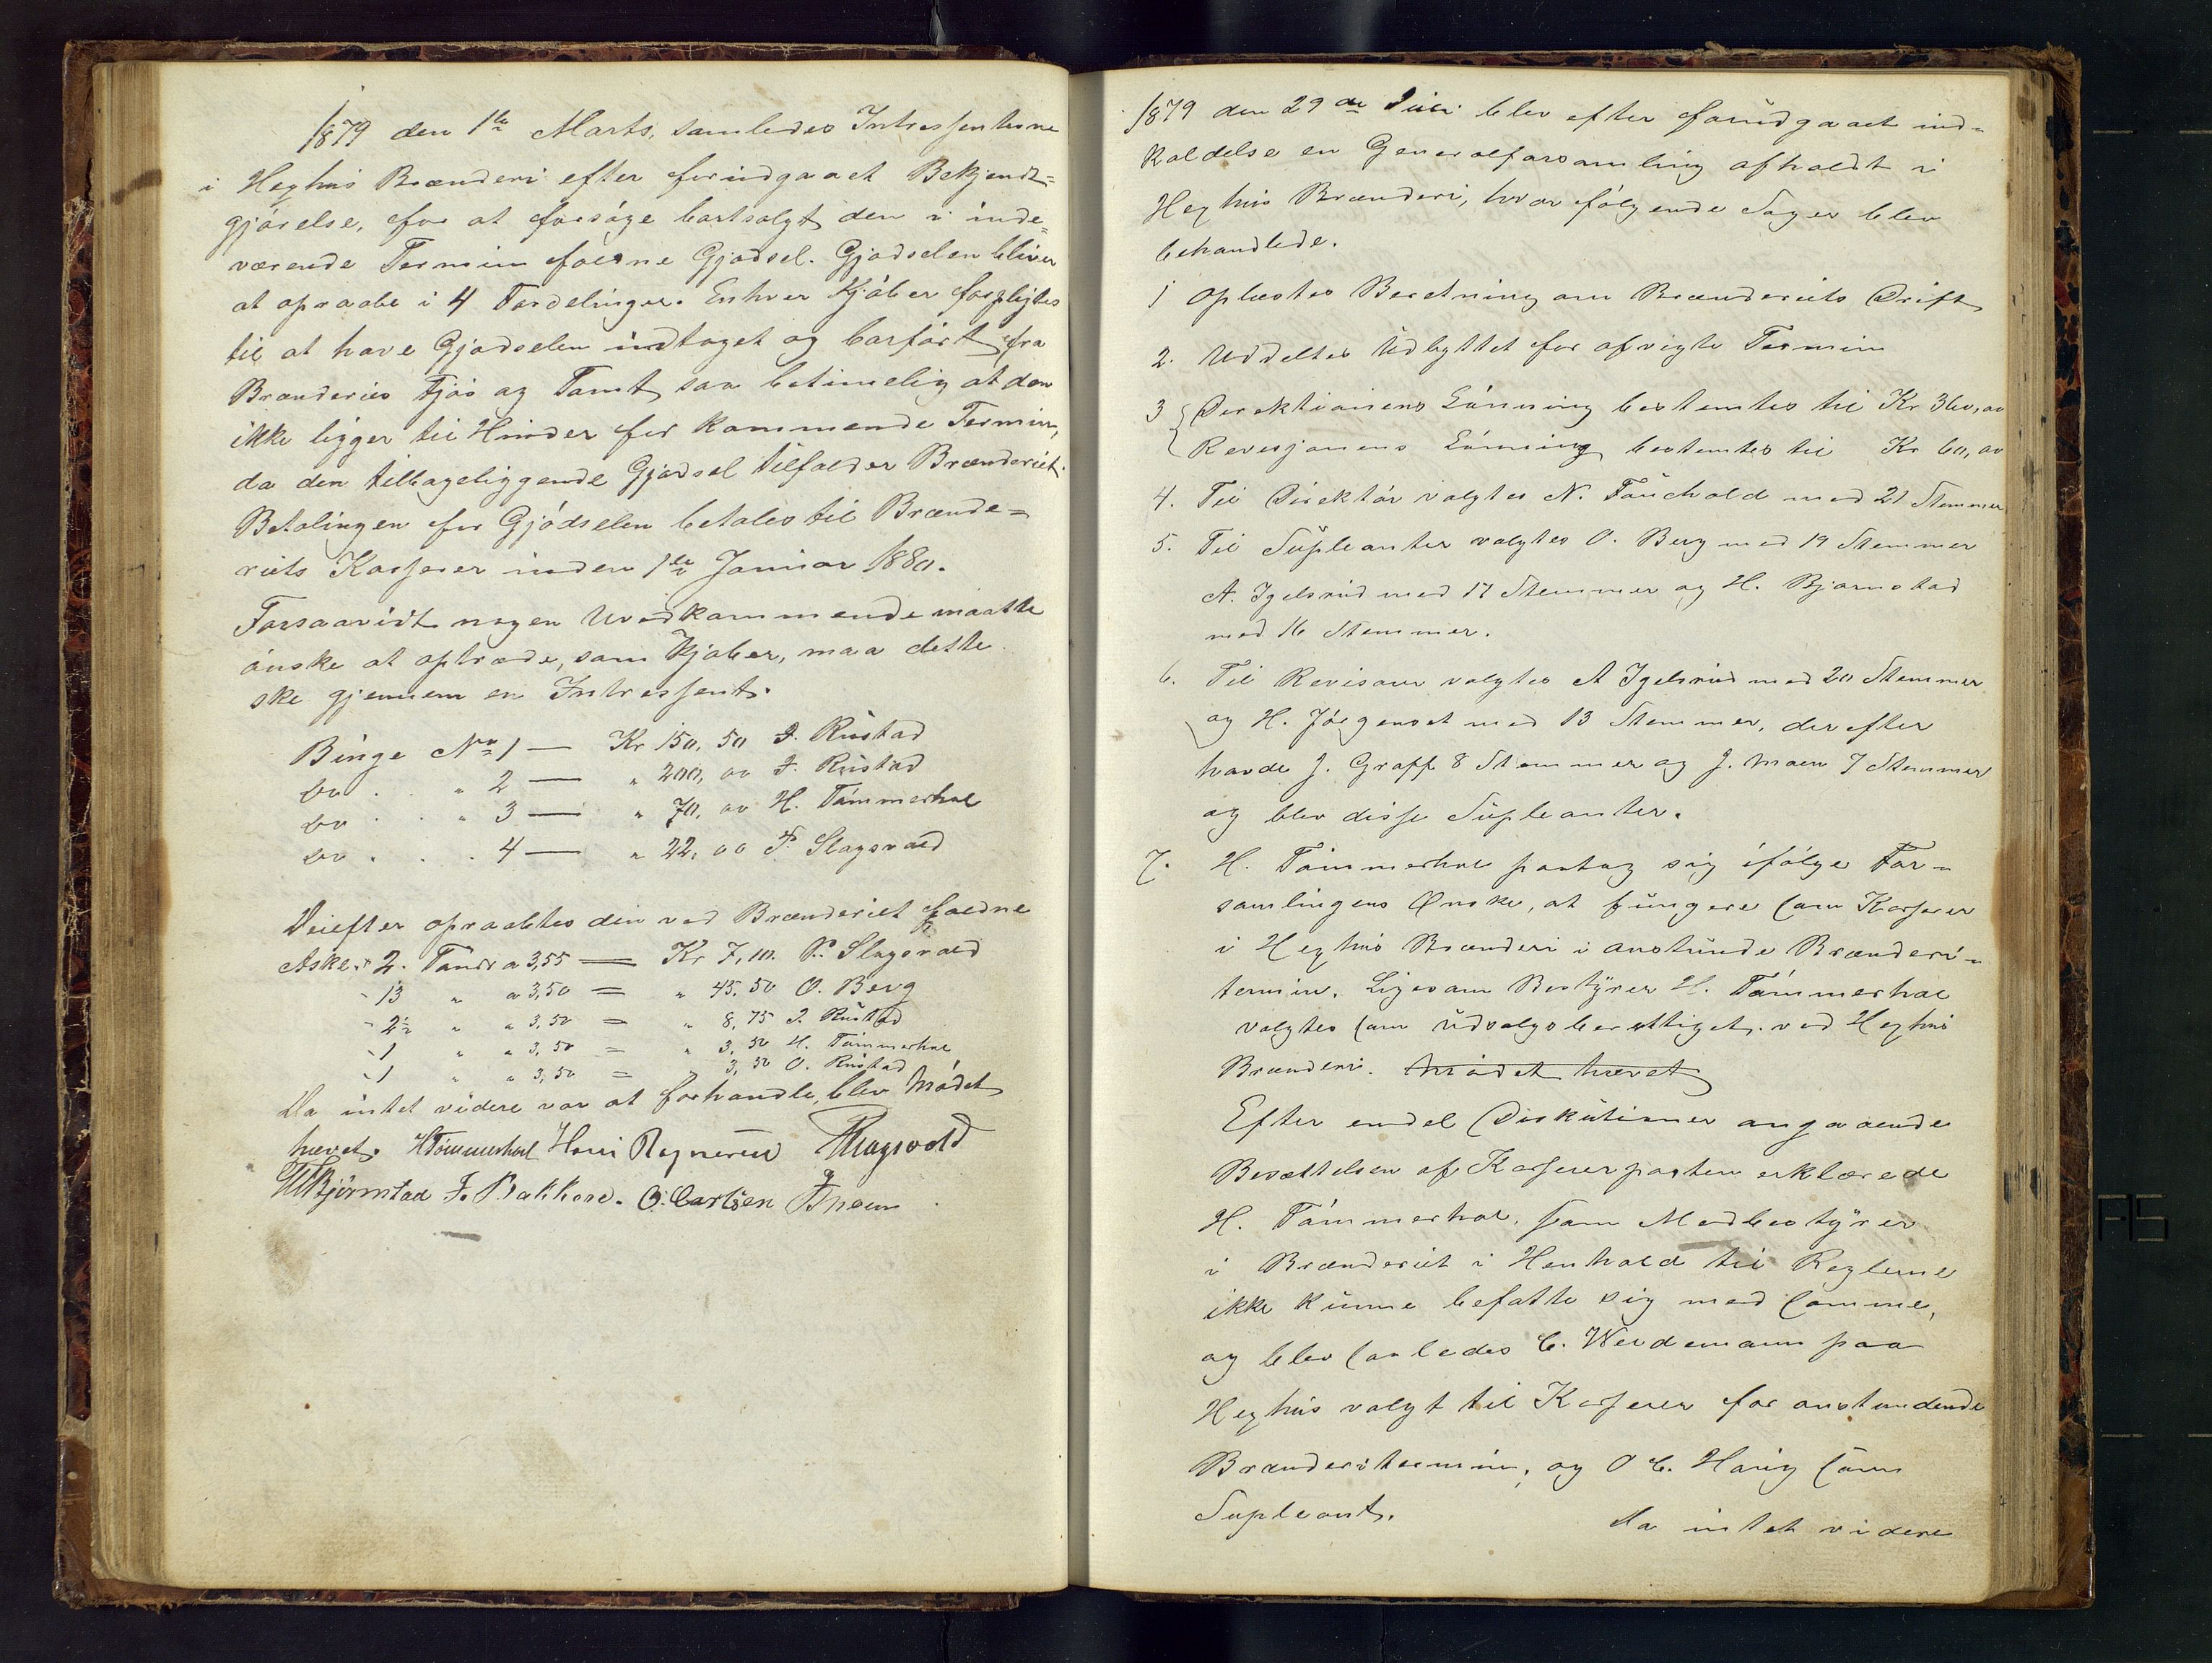 1879 den 1ste Marts, samledes Intressenterne
i Heghus Brænderi efter forudgaaet Bekjendt=
gjørelse, for at forsøge bortsolgt den i inde=
værende Termin faldne Gjødsel. Gjødselen bliver
at opraabe i 4 Fordelinger. Enhver Kjøber forpligtes
til at have Gjødselen indtaget og bortført fra
Brænderies Fjøs og Tomt saa betimelig at den
ikke ligger til Hinder for kommende Termin,
da den tilbageliggende Gjødsel tilfalder Brænderiet.
Betalingen for Gjødselen betales til Brænde=
riets Kasserer inden 1ste Januar 1880.
Forsaavidt nogen Uvedkommende maatte
ønske at optræde, som Kjøber, maa dette
ske gjennem en Intressent.
Binge No 1 — Kr 150,50 J. Rustad
do . . " 2 — " 200,00 J. Rustad
do . . " 3 — " 70,00 H. Tømmerhol
do . . . 4 — " 22,00 P. Slagsvold
Derefter opraabtes den ved Brænderiet faldne
Aske. 2. Tønde a 3,55 = Kr 7,10. P. Slagsvold
- 13 " a 3,50 = " 45.50 O. Berg
- 2½ " " 3,50 = " 8,75 J. Rustad
- 1 " " 3,50 = " 3,50 H. Tømmerhol
- 1 " " 3,50 = " 3,50 O. Rustad
Da intet videre var at forhandle, blev Mødet
hævet. HTømmerhol Hans Rognerud PSlagsvold
HBjørnstad J. Bakkene. O. Carlsen JMoen
1879 den 29de Juli blev efter forudgaaet ind=
kaldelse en Generalforsamling afholdt i
Heghus Brænderi, hvor følgende Sager blev
behandlede.
1 Oplæstes Beretning om Brænderiets Drift
2. Uddeltes Udbyttet for afvigte Termin
3 Direktionens Lønning bestemtes til Kr 360,00
Revisjonens Lønning bestemtes til Kr 60,00
4. Til Direktør valgtes N. Fauchald med 21 Stemmer
5. Til Supleanter valgtes O. Berg med 19 Stemmer
A. Igelsrud med 17 Stemmer og H. Bjørnstad
med 16 Stemmer.
6. Til Revisorer valgtes A Igelsrud med 20 Stemmer
og H. Jørgenset med 13 Stemmer, derefter
havde J. Graff 8 Stemmer og J. Moen 7 Stemmer
og blev disse Supleanter.
7. H. Tømmerhol paatog sig ifølge For=
samlingens Ønske, at fungere som Kasserer
i Heghus Brænderi i anstunde Brænderi=
termin. Ligesom Bestyrer H. Tømmerhol
valgtes som udvalgsberettiget. ved Heghus
Brænderi. Mødet hævet
Efter endel Diskutioner angaaende
Besættelsen af Kassererposten erklærede
H. Tømmerhol, som Medbestyrer
i Brænderiet i Henhold til Reglerne
ikke kunne befatte sig med samme,
og blev saaledes C. Weidemann paa
Heghus valgt til Kasserer for anstundende
Brænderitermin, og O C. Haug som
Supleant.
Da intet videre